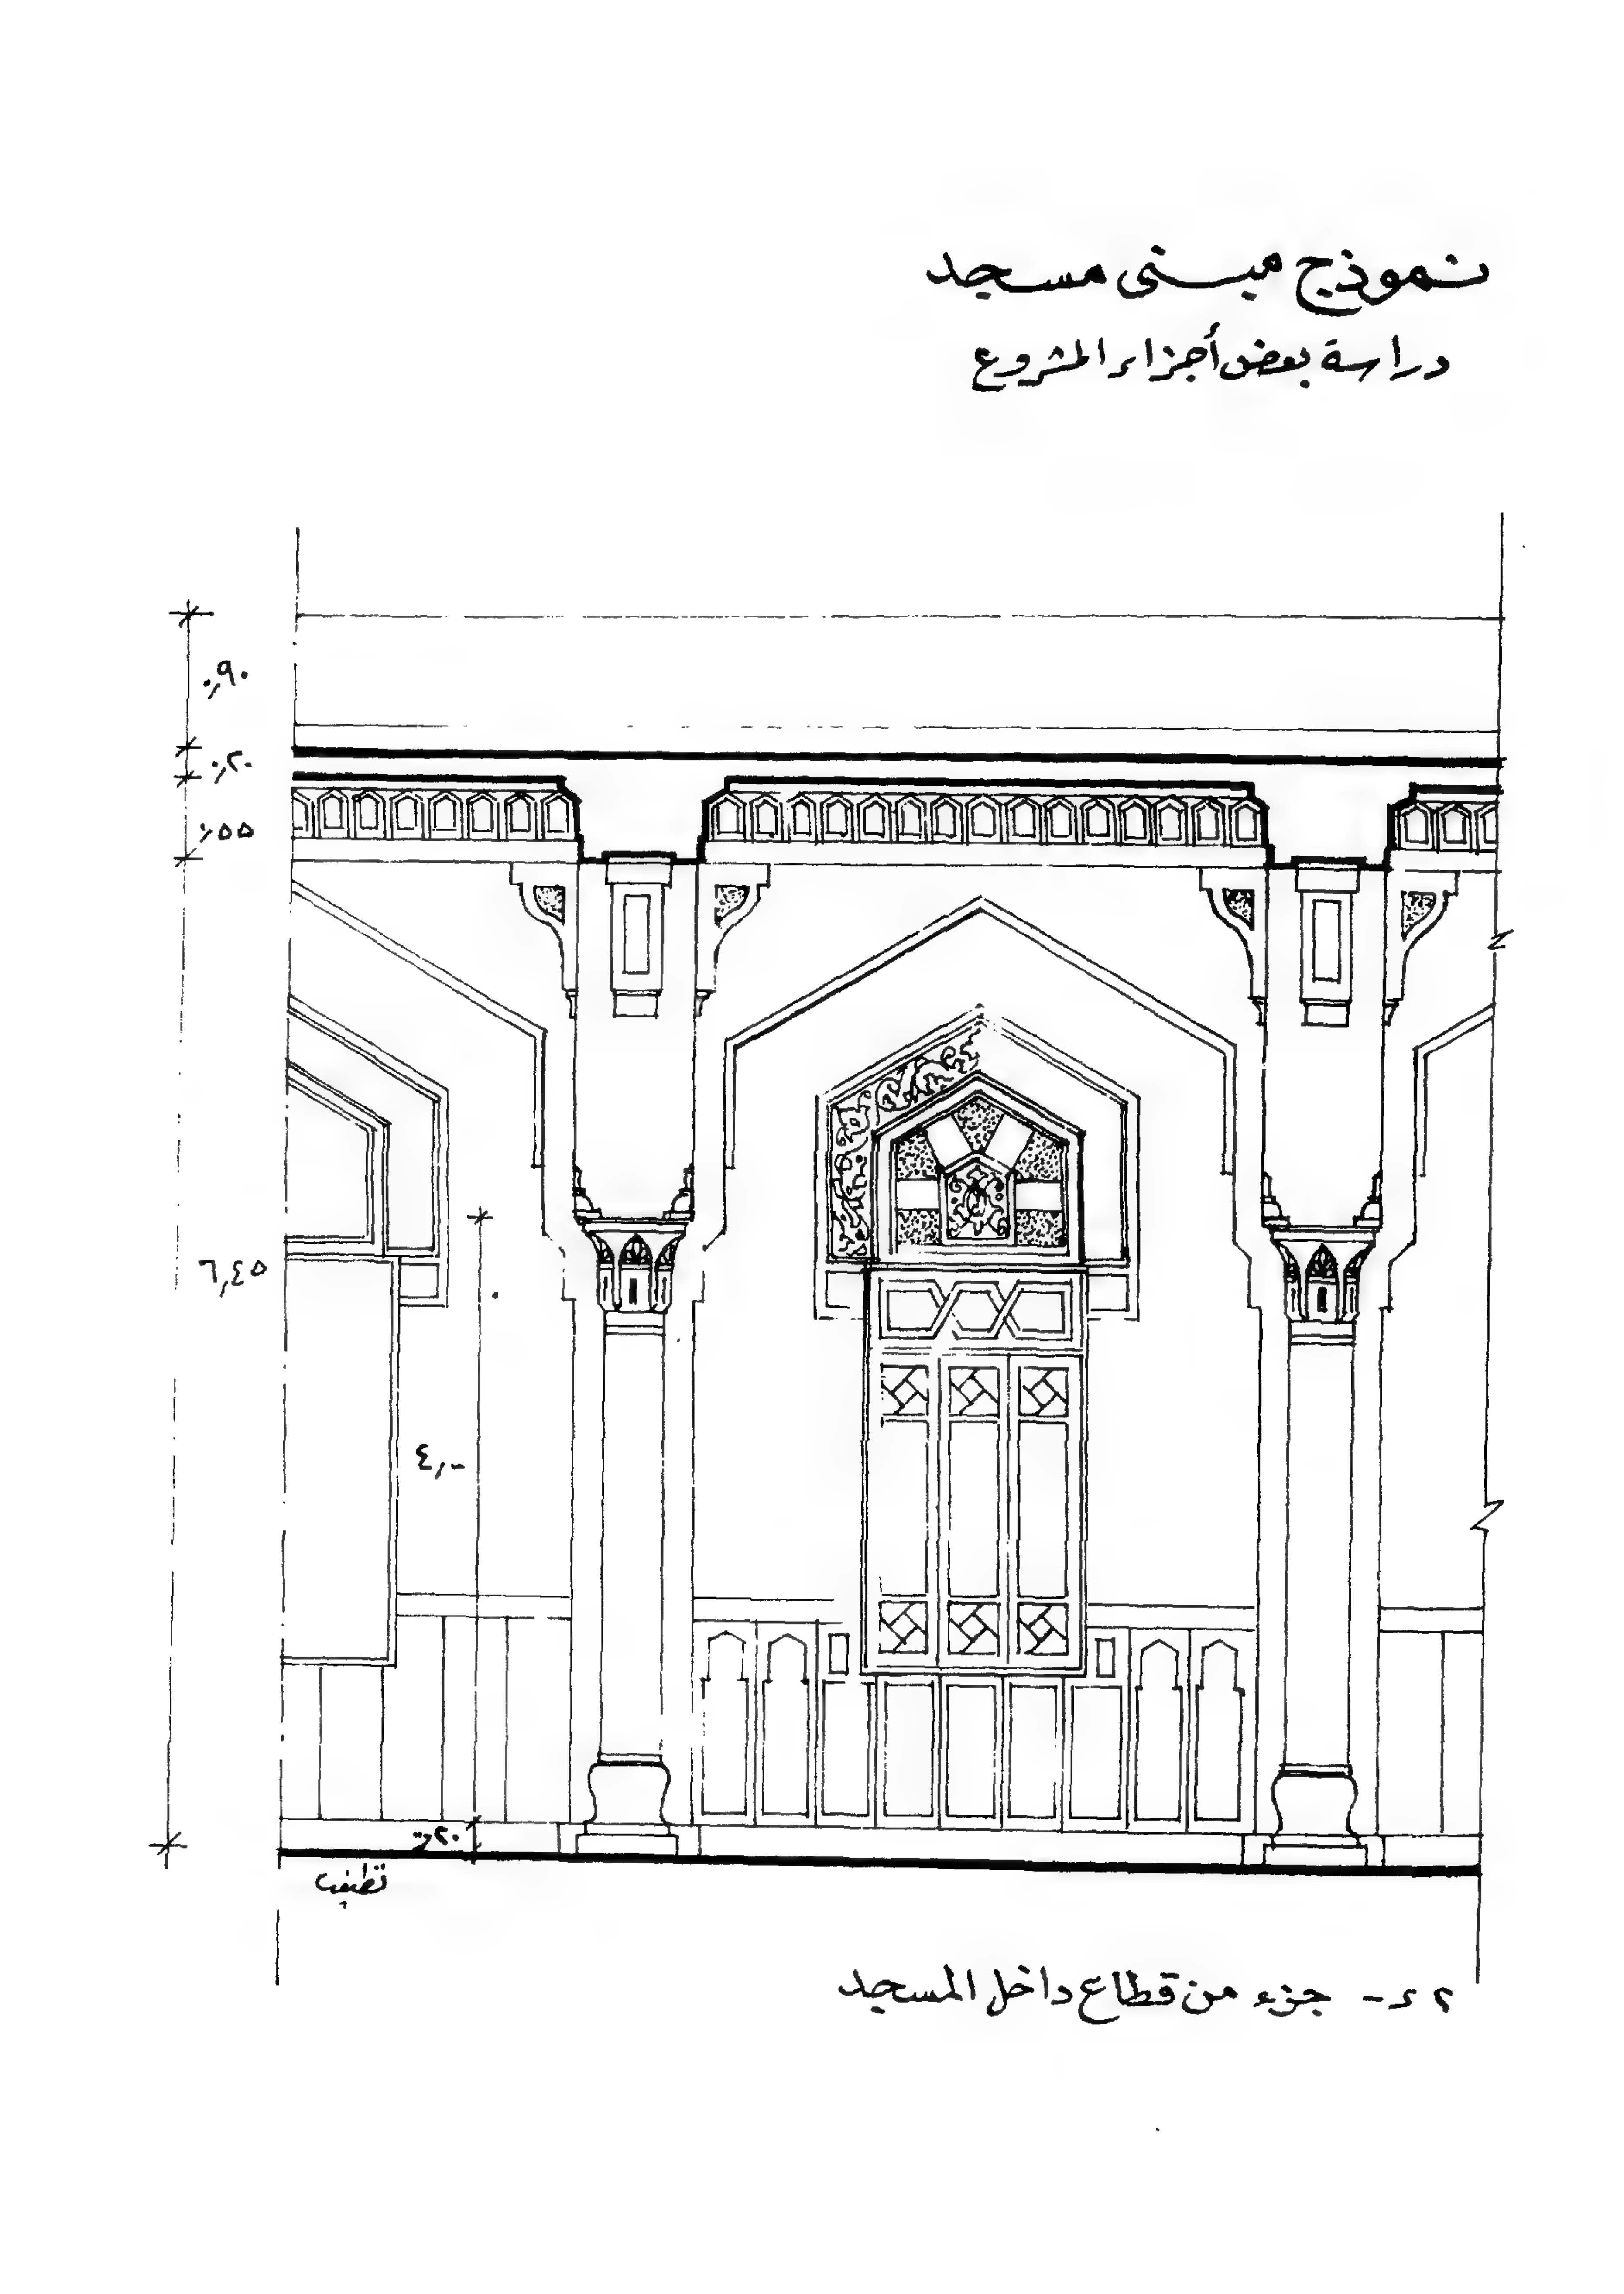 نموذج مبنى مسجد
دراسة بعض أجزاء المشروع
٠,٩٠
٠,٢٠
,٥٥
٦,٤٥
٤,٠٠
٠,٢٠
جزء من قطاع داخل المسجد